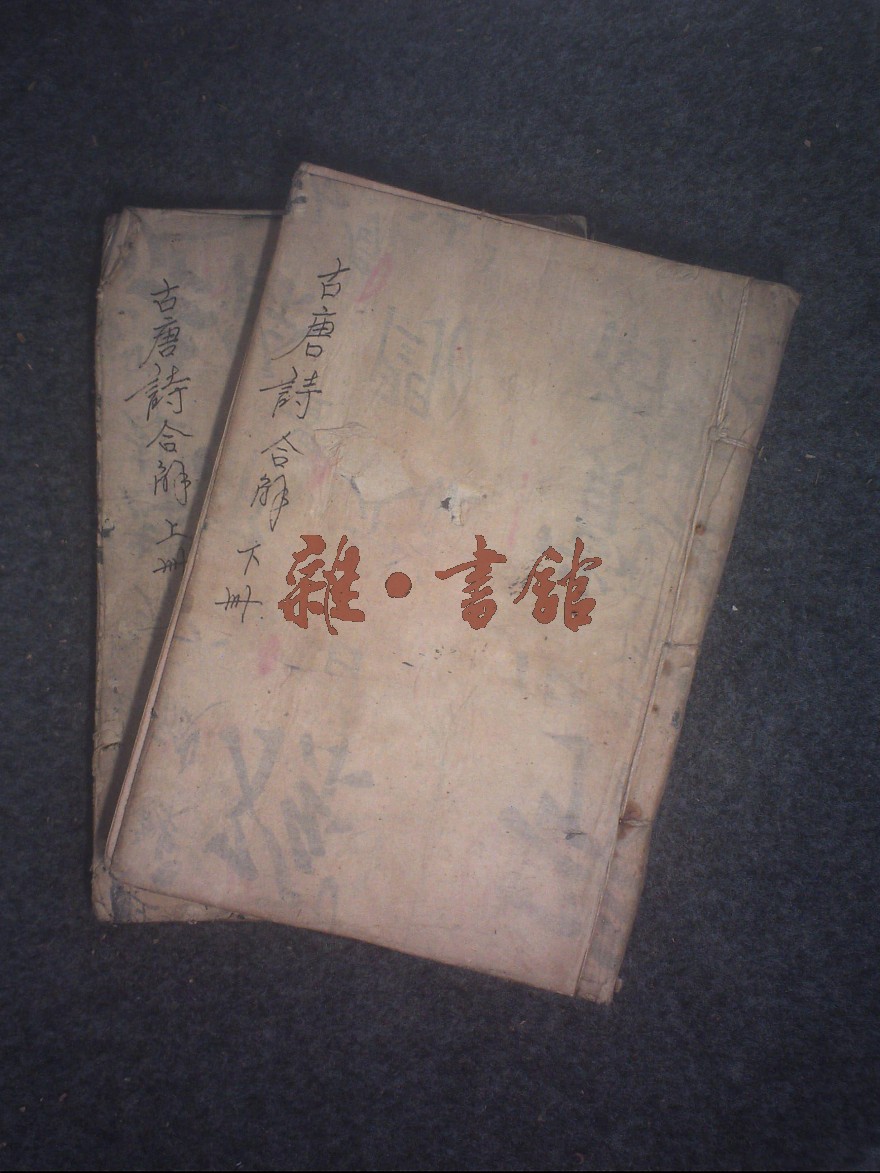 古唐詩合解 上冊
古唐詩合解 下冊
雜·書館